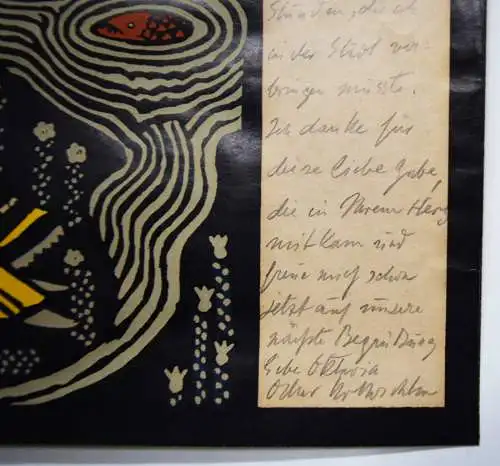 Stunden, die ich
in der Stadt ver-
bringen müsste.
Ich danke für
diese liebe Gabe,
die in Ihrem Herz
mit kam und
freue mich schon
jetzt auf unsere
nächste Begrüßung